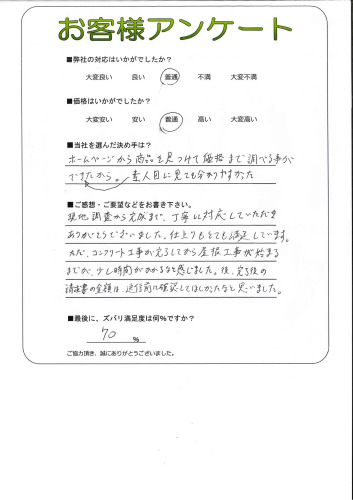 お客様アンケート
■弊社の対応はいかがでしたか？
大変良い 良い 普通 不満 大変不満
■価格はいかがでしたか？
大変安い 安い 普通 高い 大変高い
■当社を選んだ決め手は？
ホームページから商品を見つけて価格まで調べる事が
できたから。素人目に見ても分かりやすかった
■ご感想・ご要望などをお書き下さい。
現地調査から完成まで、丁寧に対応していただき
ありがとうございました。仕上りもとても満足しています。
ただ、コンクリート工事が完了してから屋根工事が始まる
までが、少し時間がかかるなと感じました。後、完了後の
請求書の金額は、送信前に確認してほしかったなと思いました。
■最後に、ズバリ満足度は何％ですか？
70 %
ご協力頂き、誠にありがとうございました。